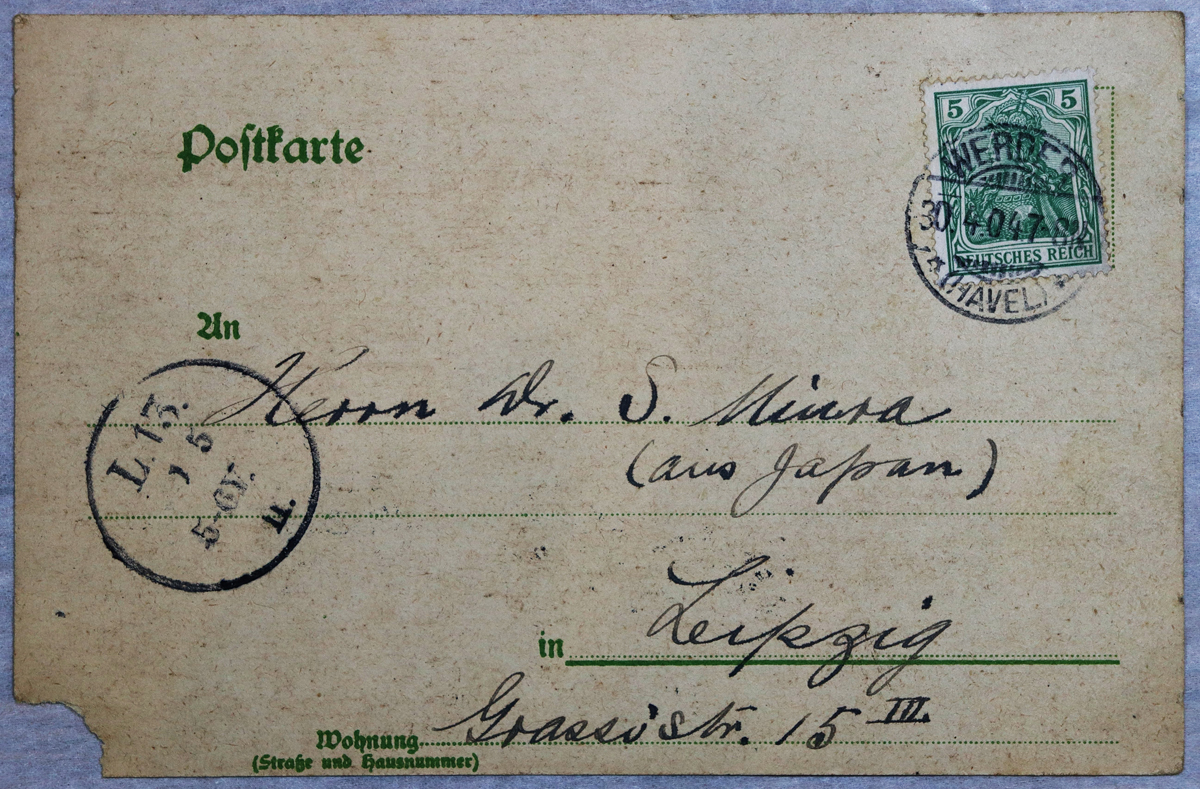 Postkarte
5 5
WERDER
30.4.04.7-8N
DEUTSCHES REICH
(HAVEL)
An
Herrn Dr. S. Miura
(aus Japan)
L.13.
1 5
5-6V.
u.
in Leipzig
Wohnung Grassistr. 15 III.
(Straße und Hausnummer)